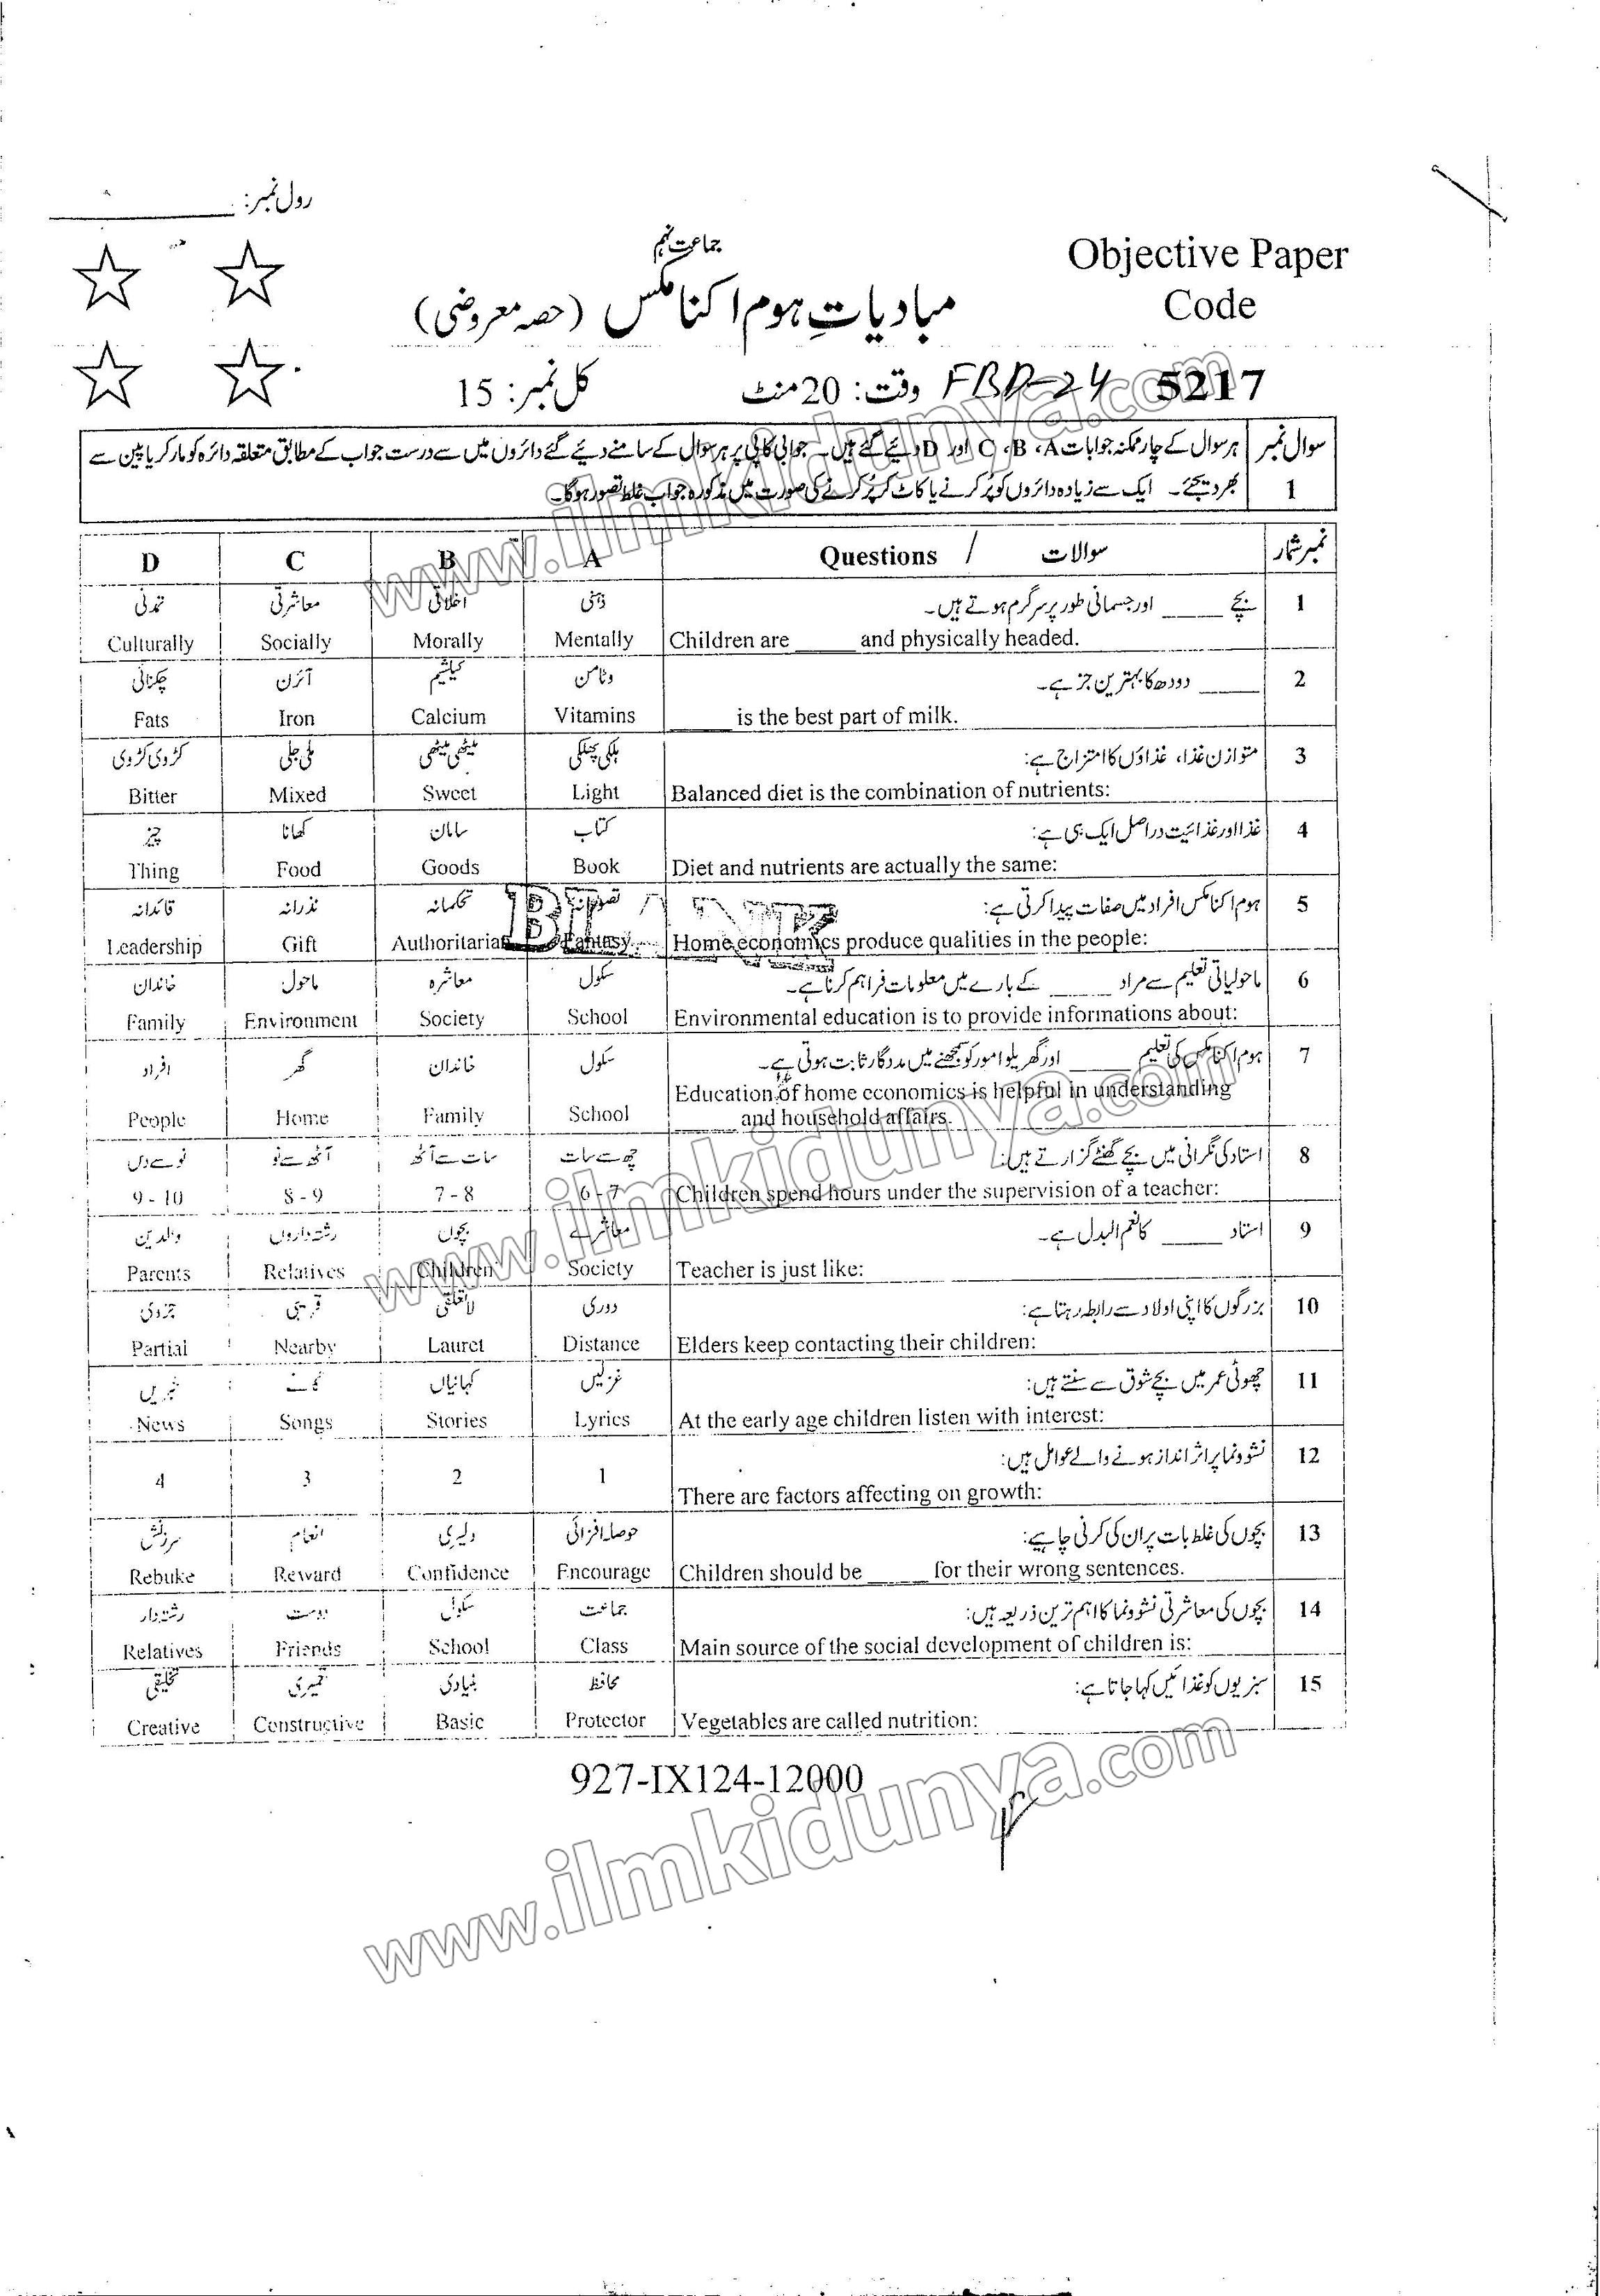 رول نمبر:
جماعت نہم
Objective Paper
Code
مبادیاتِ ہوم اکنامکس (حصہ معروضی)
5217 FBD-24 وقت: 20 منٹ کل نمبر: 15
سوال نمبر 1
ہر سوال کے چار ممکنہ جوابات A، B، C اور D دئیے گئے ہیں۔ جوابی کاپی پر ہر سوال کے سامنے دئیے گئے دائروں میں سے درست جواب کے مطابق متعلقہ دائرہ کو مارکر یا پین سے
بھر دیجئے۔ ایک سے زیادہ دائروں کو پُر کرنے یا کاٹ کر پُر کرنے کی صورت میں مذکورہ جواب غلط تصور ہوگا۔
نمبر شمار سوالات / Questions A B C D
1 بچے _____ اور جسمانی طور پر سرگرم ہوتے ہیں۔ ذہنی اخلاقی معاشرتی تمدنی
Children are _____ and physically headed. Mentally Morally Socially Culturally
2 _____ دودھ کا بہترین جز ہے۔ وٹامن کیلشیم آئرن چکنائی
_____ is the best part of milk. Vitamins Calcium Iron Fats
3 متوازن غذا، غذاؤں کا امتزاج ہے: ہلکی پھلکی میٹھی میٹھی ملی جلی کڑوی کڑوی
Balanced diet is the combination of nutrients: Light Sweet Mixed Bitter
4 غذا اور غذائیت دراصل ایک ہی ہے: کتاب سامان کھانا چیز
Diet and nutrients are actually the same: Book Goods Food Thing
5 ہوم اکنامکس افراد میں صفات پیدا کرتی ہے: تحکمانہ نذرانہ قائدانہ
Home economics produce qualities in the people: Fantasy Authoritarian Gift Leadership
6 ماحولیاتی تعلیم سے مراد _____ کے بارے میں معلومات فراہم کرنا ہے۔ سکول معاشرہ ماحول خاندان
Environmental education is to provide informations about: School Society Environment Family
7 ہوم اکنامکس کی تعلیم _____ اور گھریلو امور کو سمجھنے میں مددگار ثابت ہوتی ہے۔ سکول خاندان گھر افراد
Education of home economics is helpful in understanding
_____ and household affairs. School Family Home People
8 استاد کی نگرانی میں بچے گھنٹے گزارتے ہیں: چھ سے سات سات سے آٹھ آٹھ سے نو نو سے دس
Children spend hours under the supervision of a teacher: 6 - 7 7 - 8 8 - 9 9 - 10
9 استاد _____ کا نعم البدل ہے۔ معاشرے بچوں رشتہ داروں والدین
Teacher is just like: Society Children Relatives Parents
10 بزرگوں کا اپنی اولاد سے رابطہ رہتا ہے: دوری لاتعلقی قریبی جزوی
Elders keep contacting their children: Distance Lauret Nearby Partial
11 چھوٹی عمر میں بچے شوق سے سنتے ہیں: غزلیں کہانیاں گیت خبریں
At the early age children listen with interest: Lyrics Stories Songs News
12 نشوونما پر اثر انداز ہونے والے عوامل ہیں: 1 2 3 4
There are factors affecting on growth:
13 بچوں کی غلط بات پر ان کی کرنی چاہیے: حوصلہ افزائی دلیری انعام سرزنش
Children should be _____ for their wrong sentences. Encourage Confidence Reward Rebuke
14 بچوں کی معاشرتی نشوونما کا اہم ترین ذریعہ ہیں: جماعت سکول دوست رشتہ دار
Main source of the social development of children is: Class School Friends Relatives
15 سبزیوں کو غذائیں کہا جاتا ہے: محافظ بنیادی تعمیری تخلیقی
Vegetables are called nutrition: Protector Basic Constructive Creative
927-IX124-12000
www.ilmkidunya.com
www.ilmkidunya.com
www.ilmkidunya.com